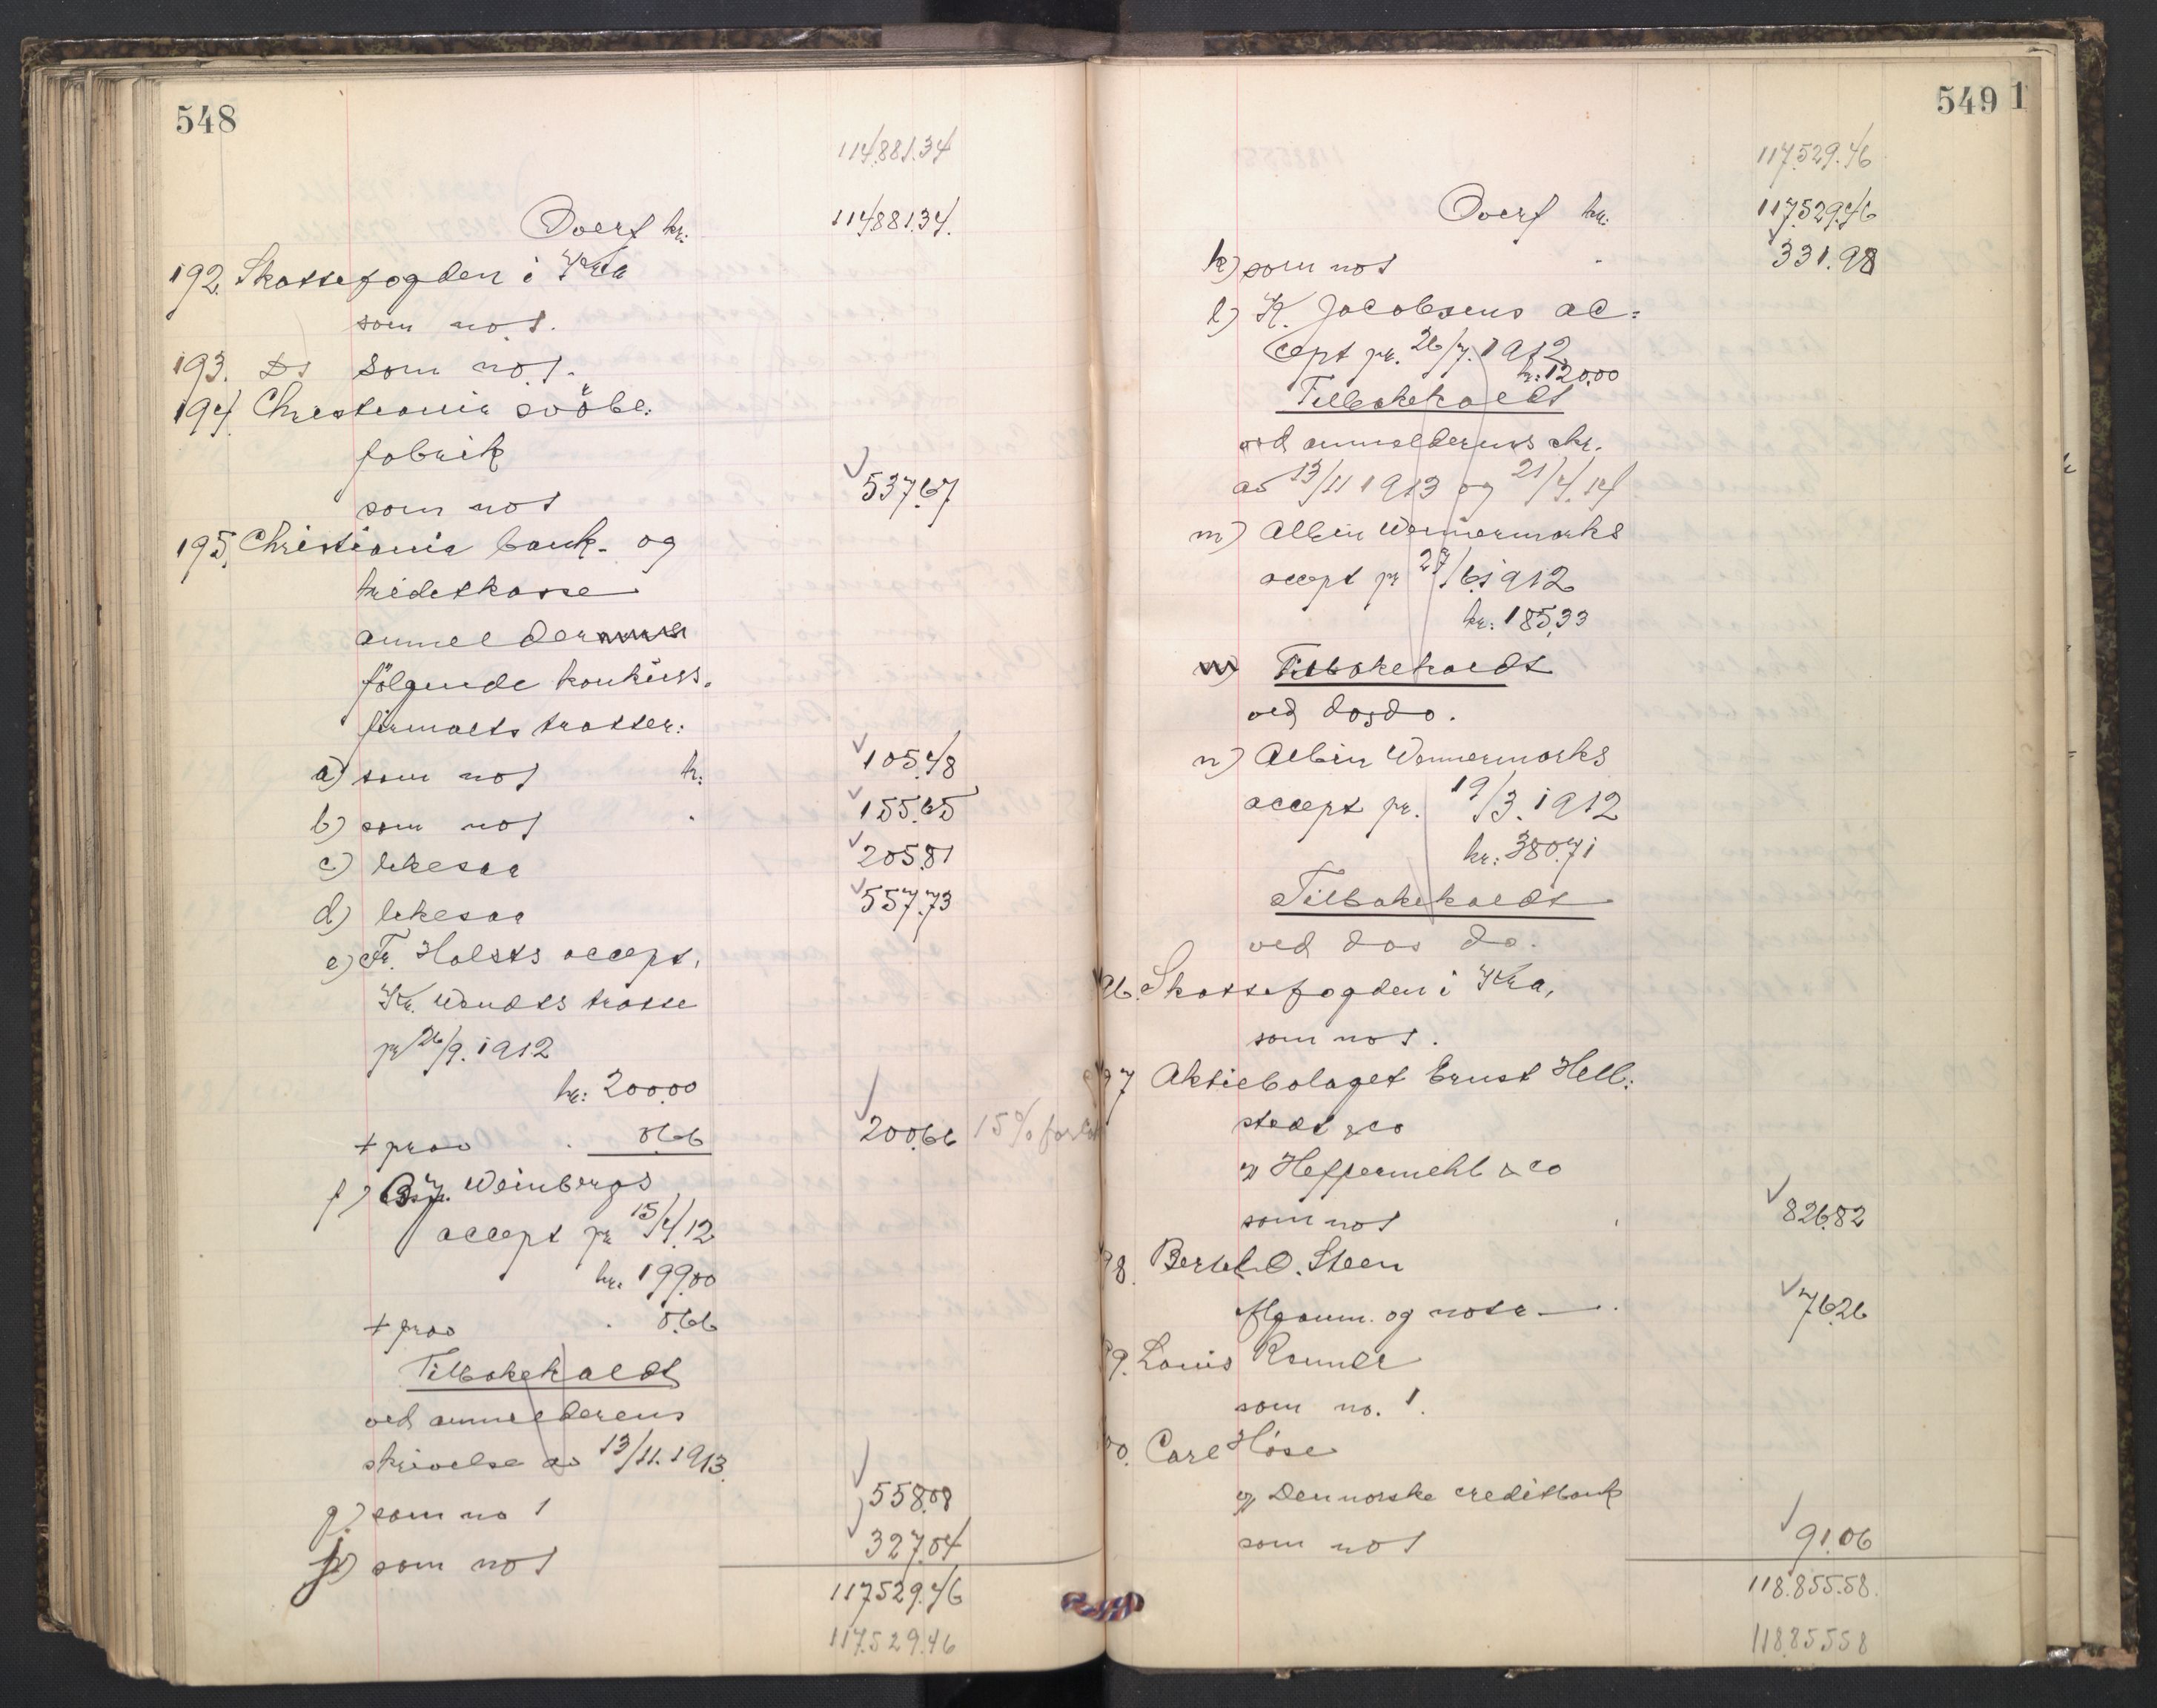 548
114.881.34
Overf kr. 114881.34.
192. Skattefogden i Kra
som no 1.
193. Ds som no 1.
194. Christiania svöbe:
fabrik
som no 1 537.67
195. Christiania bank- og
kreditkasse
anmelder
følgende konkurs-
firmaets tratter:
a) som no 1 kr. 105.48
b) som no 1 . 155.65
c) likesaa 205.81
d) likesaa 557.73
e) Fr. Holsts accept,
Kr. Wendts tratte
pr 26/9. 1912
kr: 200.00
+ prov . 0.66 200.66 15%
f) Weinbergs
accept pr 15/4.12
kr. 199.00
+ prov . 0.66
Tilbakekaldt
ved anmelderens
skrivelse av 13/11.1913.
g) som no 1 558.08
som no 1 327.04
117529.46
117.529.46
549 1
117.529.46
Overf kr. 117.529.46
k) som no 1 - 331.98
l) K. Jacobsens ac-
cept pr. 26/7. 1912.
kr: 120.00
Tilbakekaldt
ved anmelderens skr.
av 13/11 1913 og 21/4.14
m) Albin Wennermarks
accept pr 27/6.1912
kr: 185.33
Tilbakekaldt
ved dosdo.
n) Albin Wennermarks
accept pr. 19/3. 1912
kr: 380.71
Tilbakekaldt
ved dos do.
96. Skattefogden i Kra,
som no 1.
97 Aktiebolaget Ernst Hell-
stedt & co
v/ Heffermehl & co
som no 1 826.82
98. Bertel O. Steen
og nota . 76.26
99. Louis
som no. 1.
00. Carl Höse
v/ Den norske creditbank
som no 1 91.06
118.855.58.
118.855.58